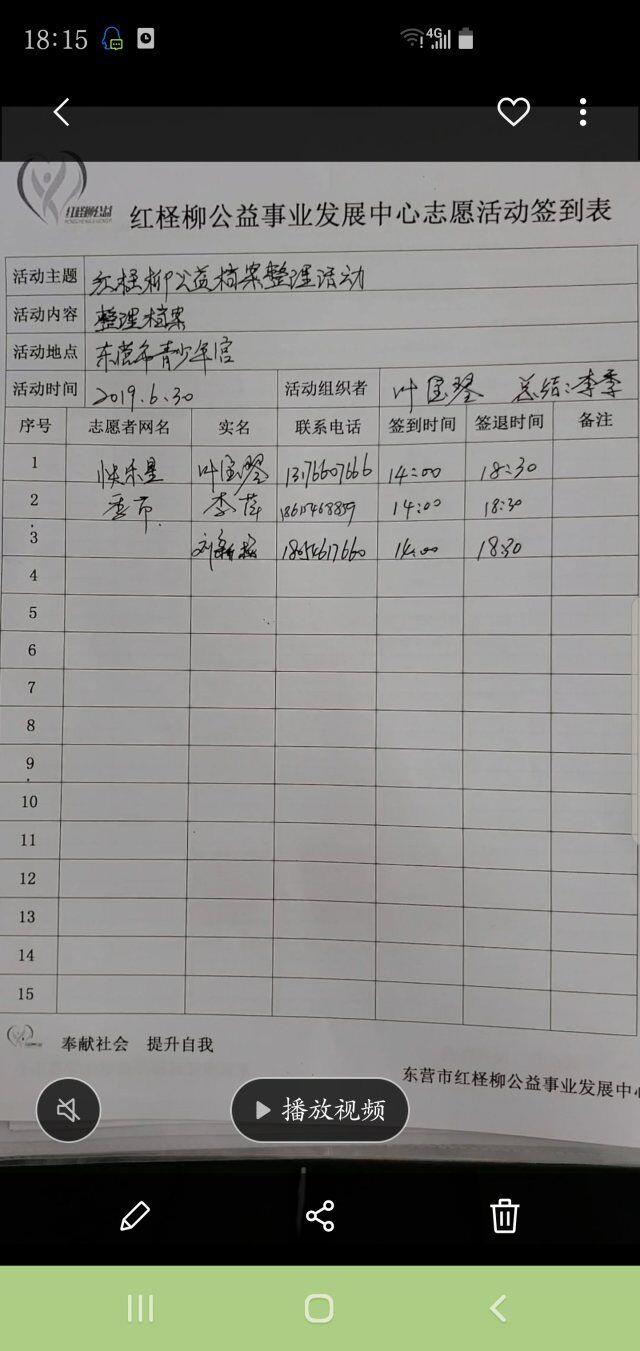 18:15 4G
红柽柳公益
红柽柳公益事业发展中心志愿活动签到表
活动主题 红柽柳公益档案整理活动
活动内容 整理档案
活动地点 东营市青少年宫
活动时间 2019.6.30 活动组织者 叶国琴 总结:李季
序号 志愿者网名 实名 联系电话 签到时间 签退时间 备注
1 快乐星 叶国琴 13176607666 14:00 18:30
2 李 14:00 18:30
3 刘 14:00 18:30
4
5
6
7
8
9
10
11
12
13
14
15
奉献社会 提升自我
东营市红柽柳公益事业发展中心
播放视频